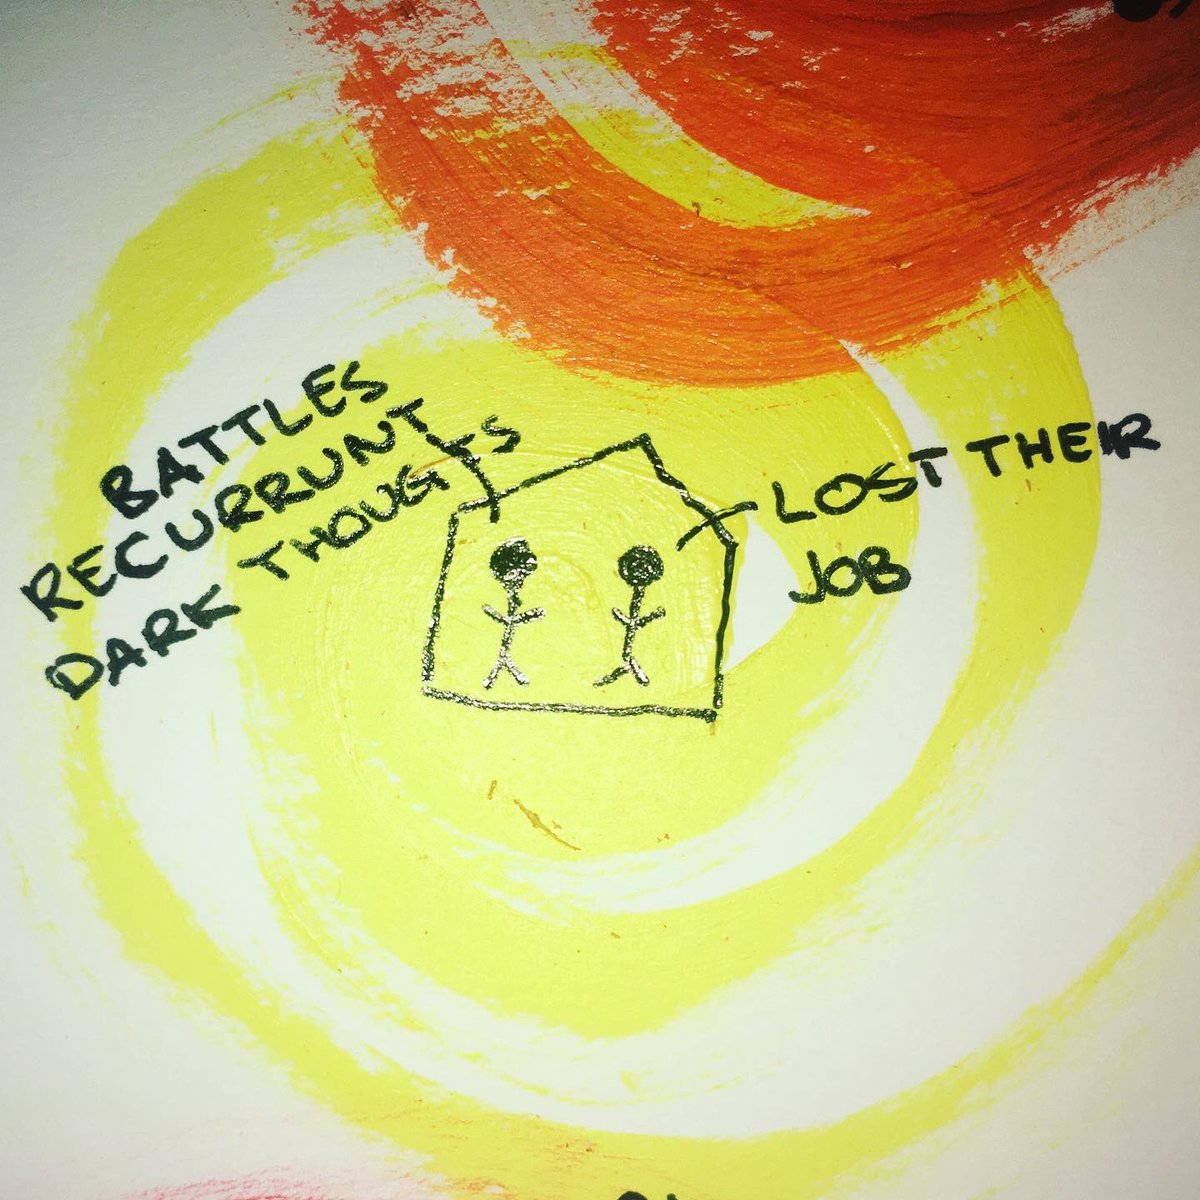 BATTLES
RECURRUNT
DARK THOUGTS
LOST THEIR
JOB